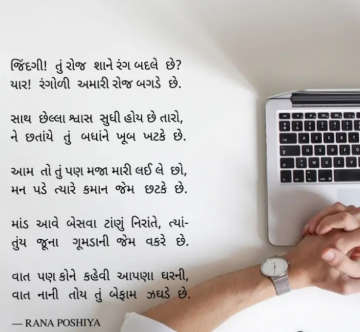 જિંદગી! તું રોજ શાને રંગ બદલે છે?
યાર! રંગોળી અમારી રોજ બગડે છે.
સાથ છેલ્લા શ્વાસ સુધી હોય છે તારો,
ને છતાંયે તું બધાંને ખૂબ ખટકે છે.
આમ તો તું પણ મજા મારી લઈ લે છો,
મન પડે ત્યારે કમાન જેમ છટકે છે.
માંડ આવે બેસવા ટાંણું નિરાંતે, ત્યાં-
તુંય જૂના ગૂમડાની જેમ વકરે છે.
વાત પણ કોને કહેવી આપણા ઘરની,
વાત નાની તોય તું બેફામ ઝઘડે છે.
— RANA POSHIYA